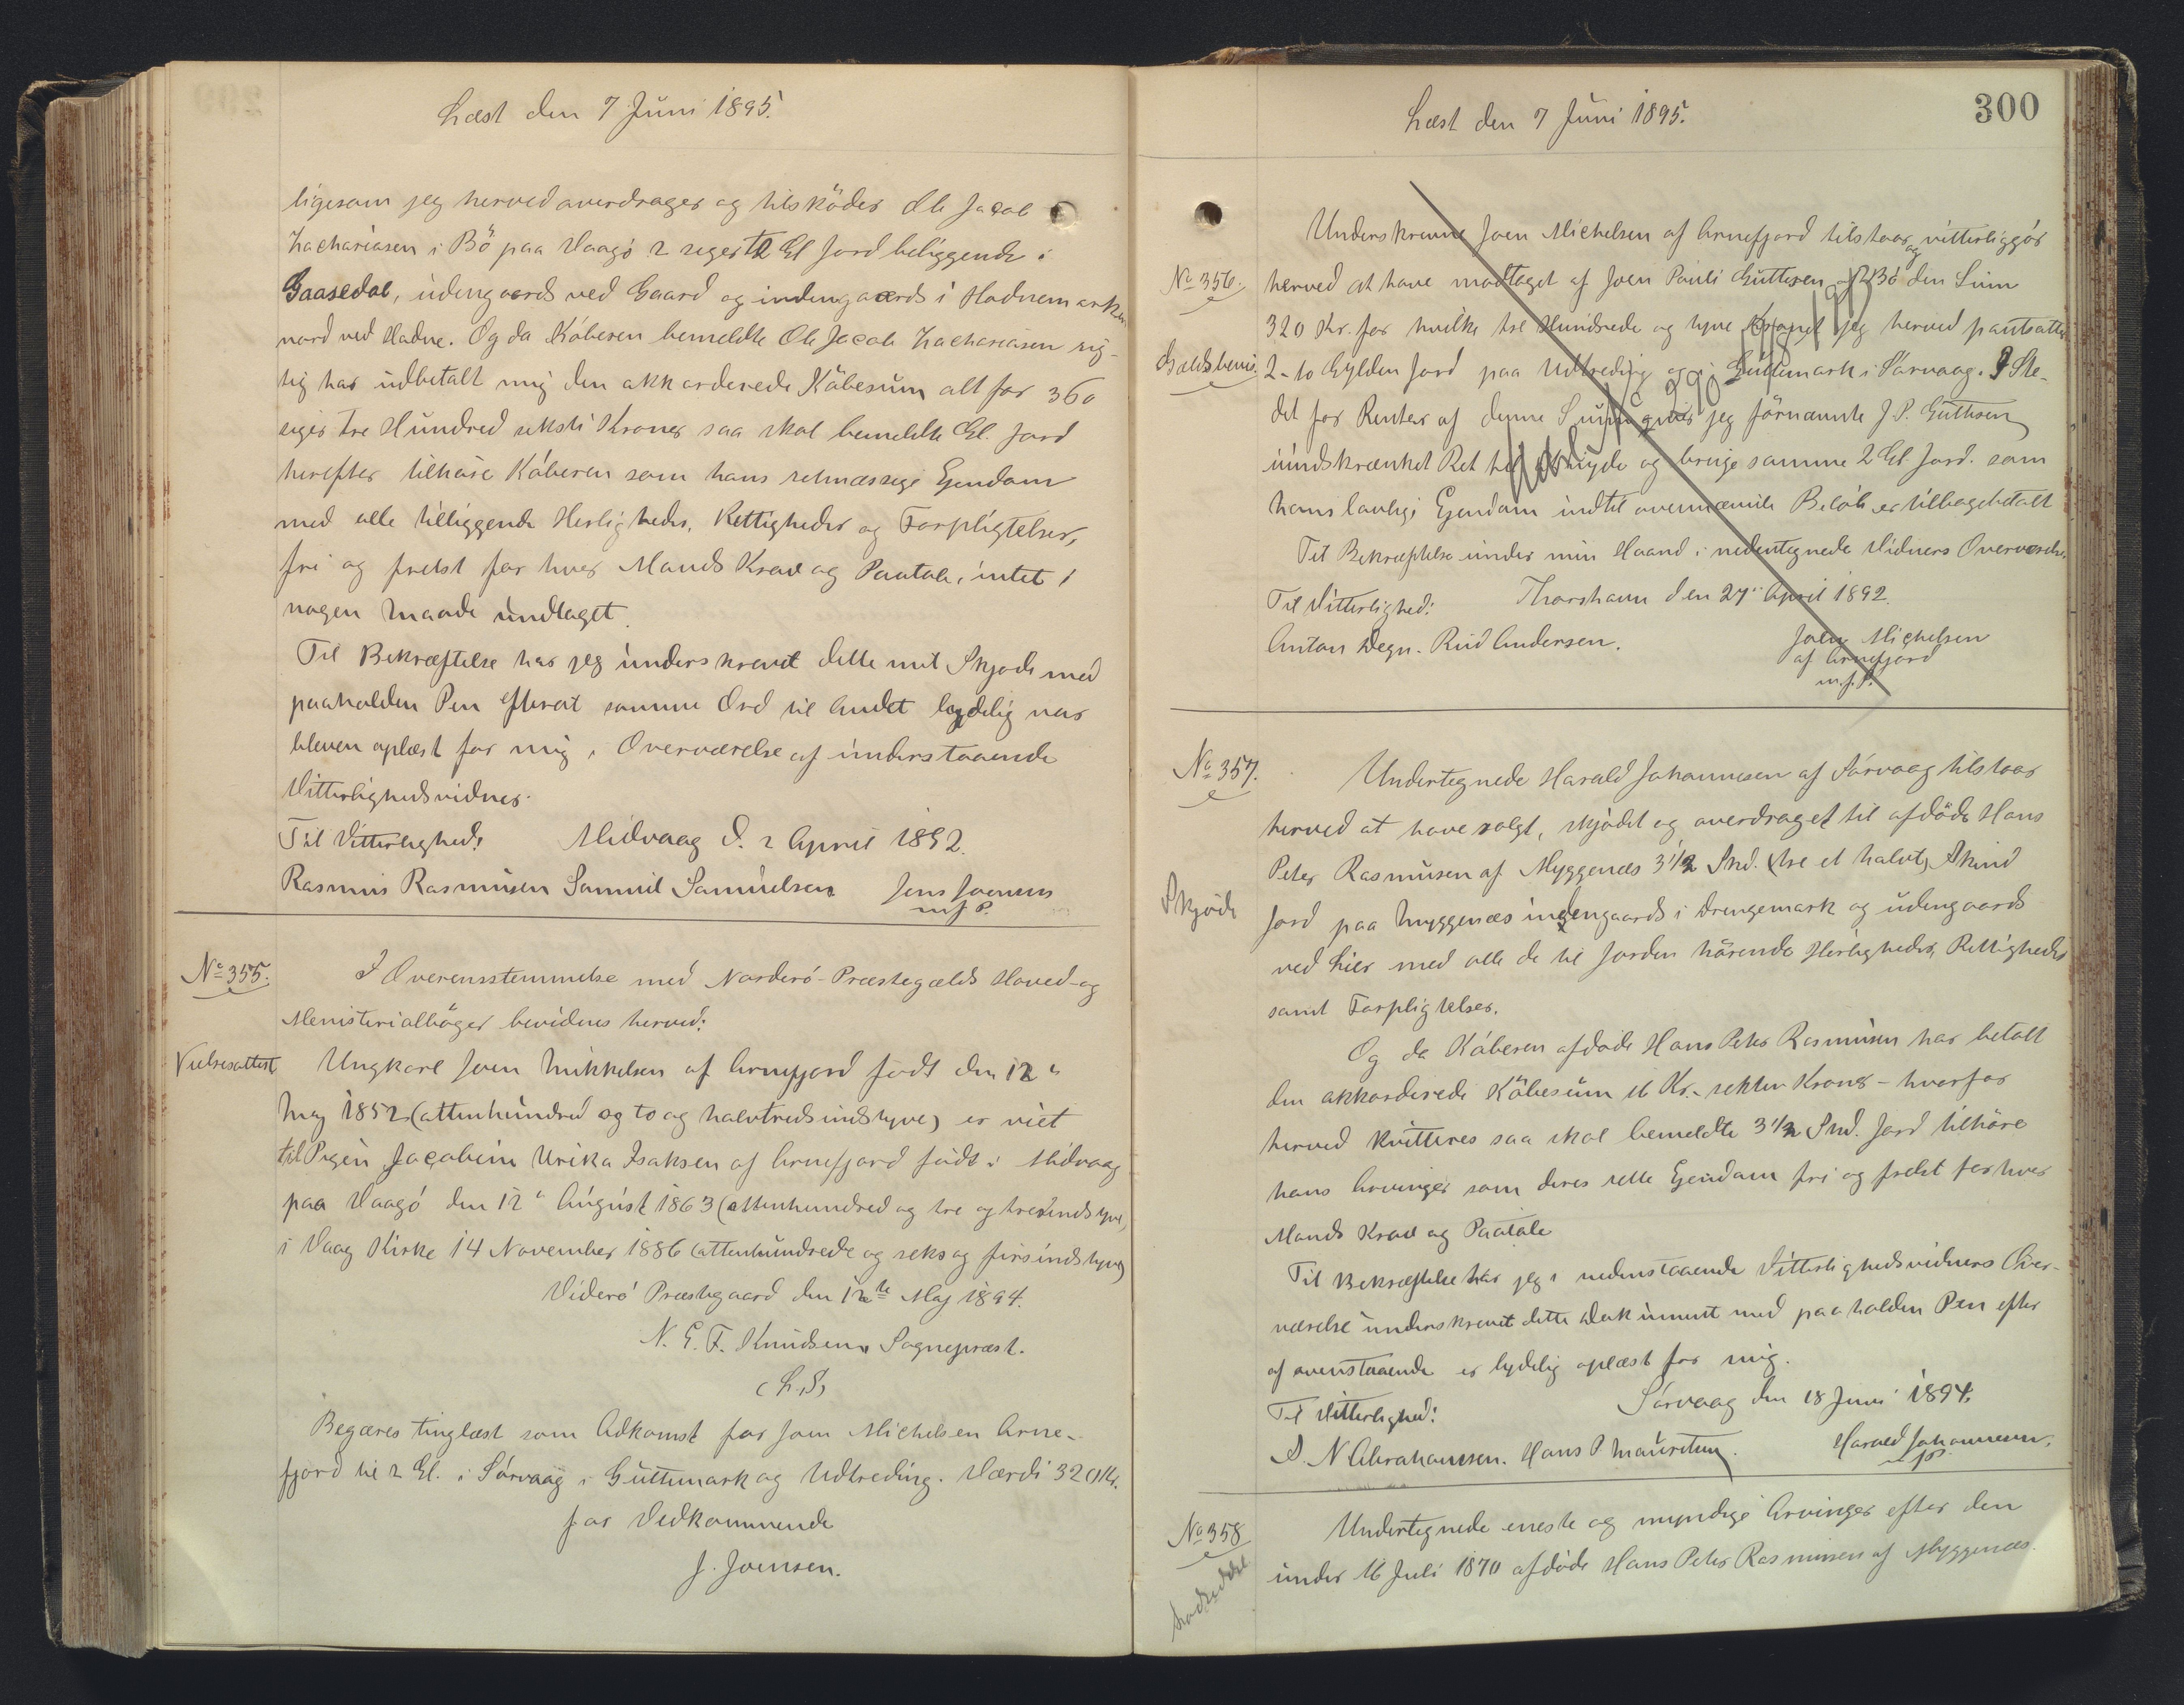 Læst den 7 Juni 1895.
ligesom jeg herved overdrager og tilsköder Ole Jacob
Zachariasen i Bö paa Vaagö 2 siger to Gl Jord beliggende i
Gaasedal, udengaards ved Gaard og indengaards i Hadnemarken
nord ved Hadne. Og da Köberen bemeldte Ole Jacob Zachariasen rig-
tig har udbetalt mig den akkorderede Köbesum alt for 360
siger tre Hundred seksti Kroner saa skal bemeldte Gl. Jord
herefter tilhöre Köberen som hans retmæssige Ejendom
med alle tilliggende Herligheder, Rettigheder og Forpligtelser,
fri og frelst for hver Mands Krav og Paatale, intet i
nogen Maade undtaget.
Til Bekræftelse har jeg underskrevet dette mit Skjöde med
paaholden Pen efterat samme Ord til andet lydelig var
bleven oplæst for mig i Overværelse af understaaende
Vitterlighedsvidner.
Til Vitterlighed: Midvaag d. 2 April 1892.
Rasmus Rasmusen Samuel Samuelsen Jens Joensen
m.f.P.
No 355. I Overensstemmelse med Norderö-Præstegælds Hoved-og
Ministerialböger bevidnes herved:
Vielsesattest Ungkarl Joen Mikkelsen af Arnefjord födt den 12"
Maj 1852 (attenhundred og to og halvtredsindstyve) er viet
til Pigen Jacobine Urika Isaksen af Arnefjord födt i Midvaag
paa Vaagö den 12" August 1863 (attenhundred og tre og tresindstyve)
i Vaag Kirke 14 November 1886 (attenhundrede og seks og firsindstyve)
Viderö Præstegaard den 12te Maj 1894.
N. E. F. Knudsen, Sognepræst.
(L.S)
Begæres tinglæst som Adkomst for Joen Michelsen Arne-
fjord til 2 Gl. i Sörvaag i Guttemark og Udtreding. Værdi 320 Kr.
for Vedkommende
J. Joensen.
Læst den 7 Juni 1895.
300
Underskrevne Joen Michelsen af Arnefjord tilstaar og vitterliggör
No 356. herved at have modtaget af Joen Pauli Guttesen af Bö den Sum
320 Kr. for hvilke tre Hundrede og tyve Kroner jeg herved pantsætter
Gældsbevis. 2-to Gylden Jord paa Udtreding og i Guttemark i Sörvaag. I Ste-
det for Renter af denne Sum giver jeg förnævnte J. P. Guttesen
uindskrænket Ret til at nyde og bruge samme 2 Gl. Jord. som
hans lovlige Ejendom indtil ovennævnte Belöb er tilbagebetalt
Til Bekræftelse under min Haand i nedentegnede Vidners Overværelse.
Til Vitterlighed: Thorshavn den 27" April 1892.
Anton Degn. Rud Andersen. Joen Michelsen
af Arnefjord
m.f.P.
No 357. Undertegnede Harald Johannesen af Sörvaag tilstaar
herved at have solgt, skjödet og overdraget til afdöde Hans
Peter Rasmusen af Myggenæs 3 1/2 Skd. (tre et halvt) Skind
Skjöde
Jord paa Myggenæs indengaards i Drengemark og udengaards
ved Lier med alle de til Jorden hörende Herligheder, Rettigheder
samt Forpligtelser.
Og da Köberen afdöde Hans Peter Rasmusen har betalt
den akkorderede Köbesum 16 Kr. - seksten Kroner - hvorfor
herved kvitteres saa skal bemeldte 3 1/2 Skd. Jord tilhöre
hans Arvinger som deres rette Ejendom fri og frelst for hver
Mands Krav og Paatale
Til Bekræftelse har jeg i nedenstaaende Vitterlighedsvidners Over-
værelse underskrevet dette Dokument med paaholden Pen efter
at ovenstaaende er lydelig oplæst for mig.
Til Vitterlighed: Sörvaag den 18 Juni 1894.
S. N Abrahamsen. Hans P Mauritsen. Harald Johannesen.
m.f.P.
No 358 Undertegnede eneste og myndige Arvinger efter den
under 16 Juli 1870 afdöde Hans Peter Rasmusen af Myggenæs.